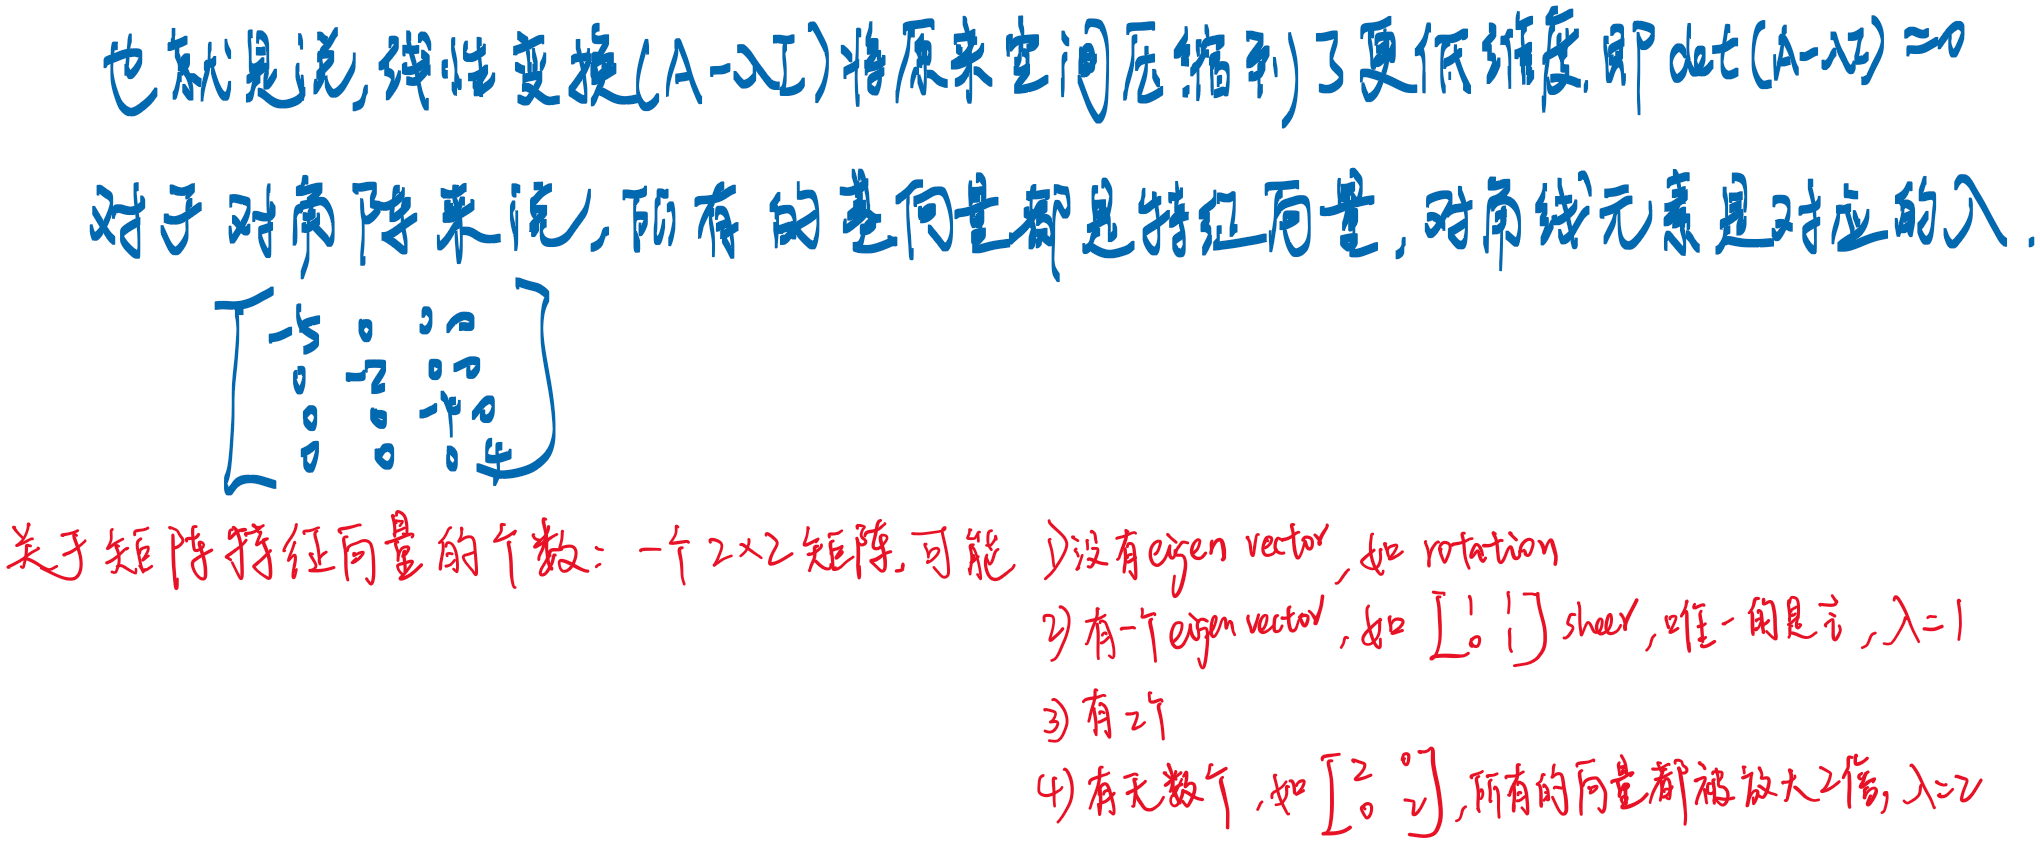 也就是说,线性变换(A-λI)将原来空间压缩到了更低维度.即det(A-λI)=0
对于对角阵来说,所有的基向量都是特征向量,对角线元素是对应的λ.
-5 0 0 0
0 -2 0 0
0 0 -4 0
0 0 0 4
关于矩阵特征向量的个数: 一个2×2矩阵,可能 1)没有eigen vector,如 rotation
2)有一个eigen vector,如 [1 1
0 1] sheer,唯一的是î,λ=1
3)有2个
4)有无数个,如 [2 0
0 2],所有的向量都被放大2倍,λ=2